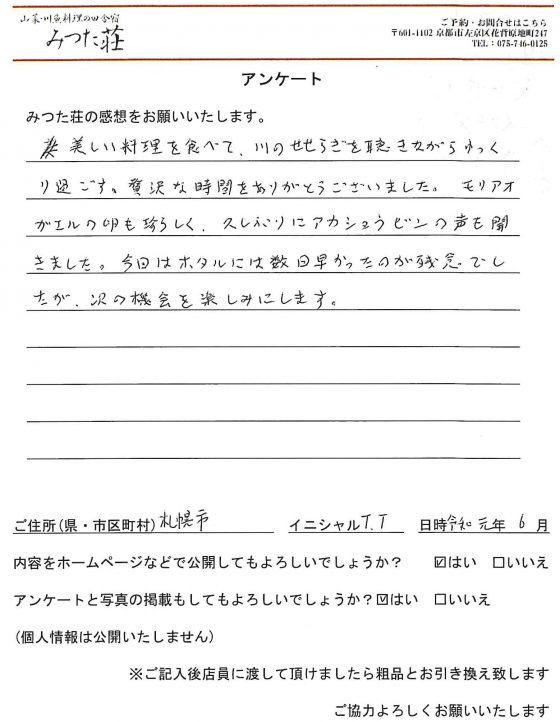 山菜・川魚料理の田舎宿
みつた荘
ご予約・お問合せはこちら
〒601-1102 京都市左京区花脊原地町247
TEL：075-746-0125
アンケート
みつた荘の感想をお願いいたします。
美しい料理を食べて、川のせせらぎを聴きながらゆっく
り過ごす。贅沢な時間をありがとうございました。 モリアオ
ガエルの卵も珍らしく、久しぶりにアカショウビンの声も聞
きました。今回はホタルには数日早かったのが残念でし
たが、次の機会を楽しみにします。
ご住所(県・市区町村) 札幌市 イニシャル T.T 日時 令和 元年 6 月
内容をホームページなどで公開してもよろしいでしょうか？ ☑はい □いいえ
アンケートと写真の掲載もしてもよろしいでしょうか？☑はい □いいえ
(個人情報は公開いたしません)
※ご記入後店員に渡して頂けましたら粗品とお引き換え致します
ご協力よろしくお願いいたします